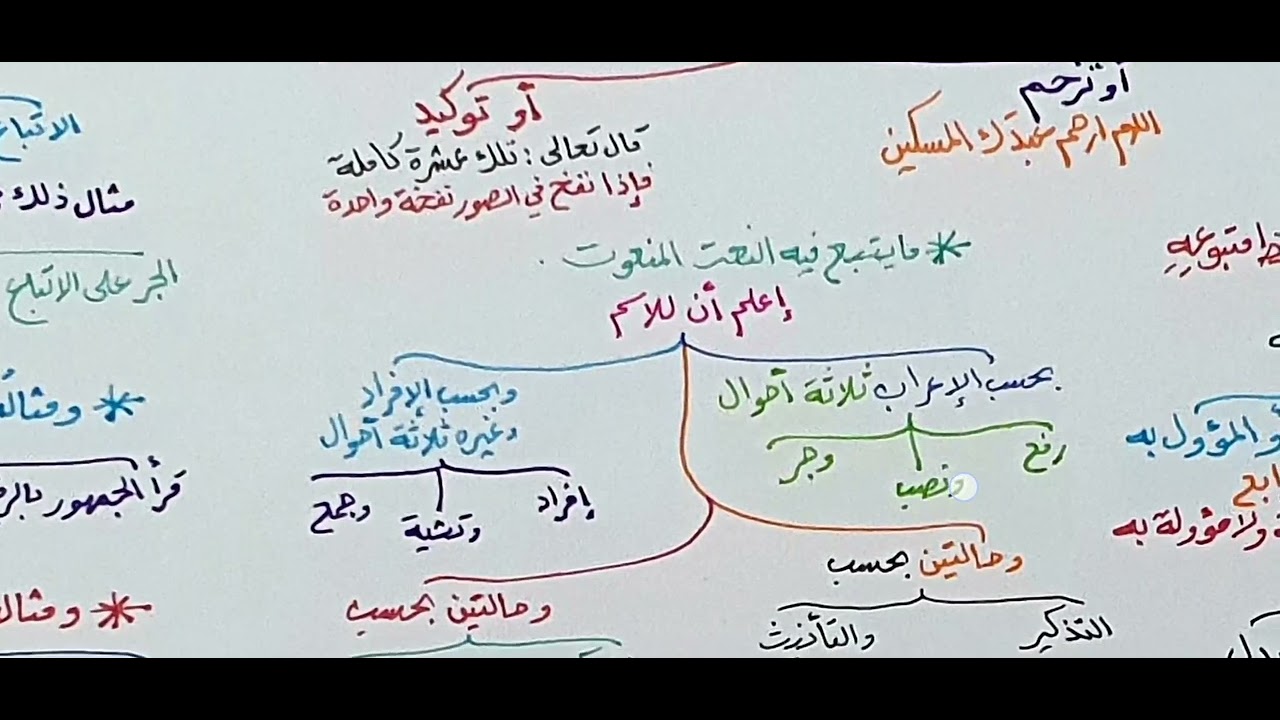 أو ترحم
اللهم ارحم عبدك المسكين
أو توكيد
قال تعالى : تلك عشرة كاملة
فإذا نفخ في الصور نفخة واحدة
الاتباع
مثال ذلك
الجر على الاتباع
* ما يتبع فيه النعت المنعوت .
إعلم أن للاسم
بحسب الإعراب ثلاثة أحوال
رفع
ونصب
وجر
وبحسب الإفراد
وغيره ثلاثة أحوال
إفراد
وتثنية
وجمع
وحالتين بحسب
التذكير
والتأنيث
وحالتين بحسب
متبوعه
أو المؤول به
ولا مؤولة به
* ومثاله
قرأ الجمهور بالرفع
* ومثال